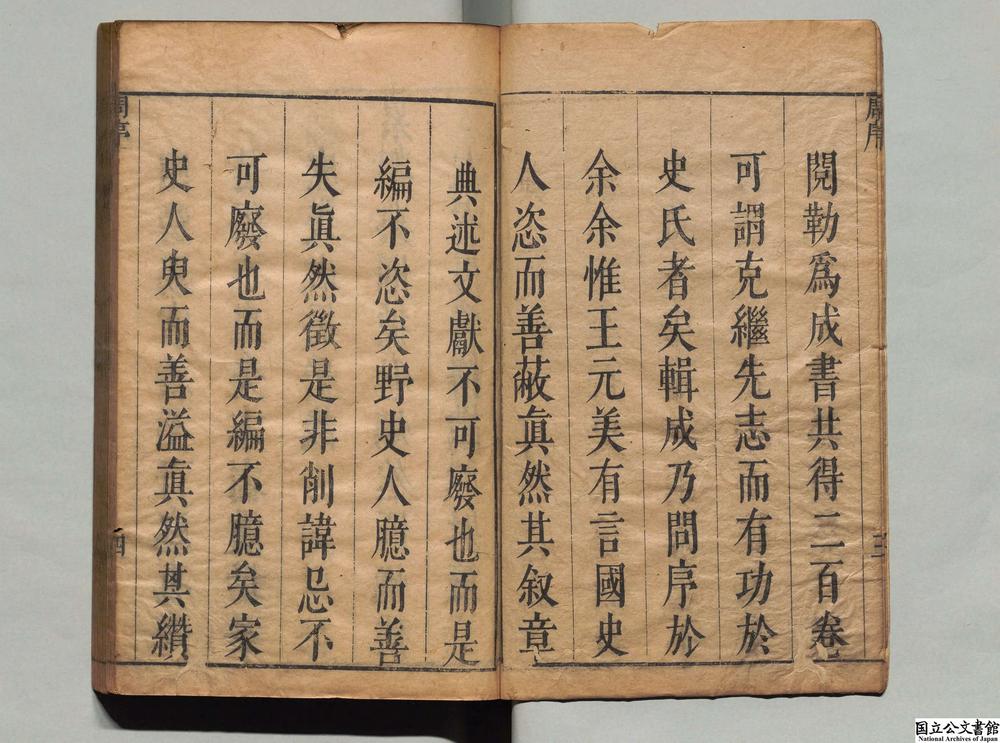 閱勒爲成書共得二百卷
可謂克繼先志而有功於
史氏者矣輯成乃問序於
余余惟王元美有言國史
人恣而善蔽眞然其叙章
典述文獻不可廢也而是
編不恣矣野史人臆而善
失眞然徵是非削諱忌不
可廢也而是編不臆矣家
史人臾而善溢眞然其纘
国立公文書館
National Archives of Japan